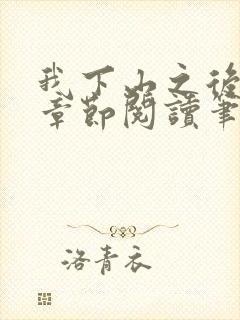 我下山之後
章節閱讀筆
洛青衣